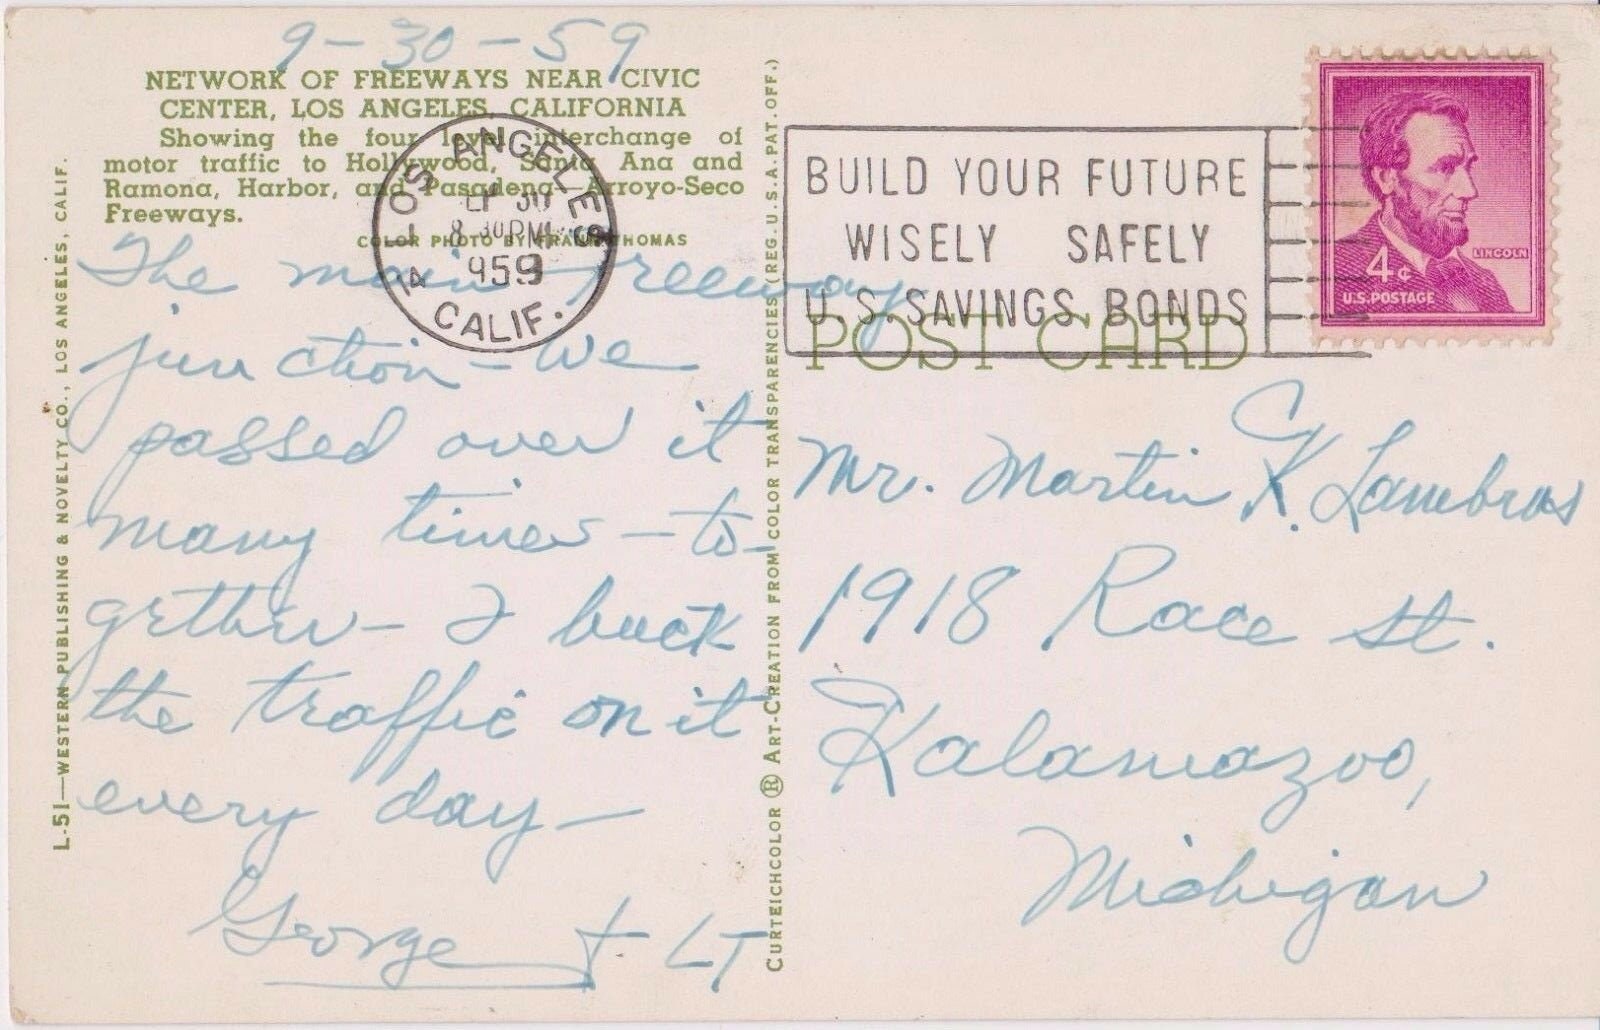 9-30-59
NETWORK OF FREEWAYS NEAR CIVIC
CENTER, LOS ANGELES, CALIFORNIA
Showing the four level interchange of
motor traffic to Hollywood, Santa Ana and
Ramona, Harbor, and Pasadena—Arroyo-Seco
Freeways.
COLOR PHOTO BY FRANK THOMAS
The main freeway
junction - we
passed over it
many times - to-
gether - I buck
the traffic on it
every day -
George + LT
L-51—WESTERN PUBLISHING & NOVELTY CO., LOS ANGELES, CALIF.
CURTEICHCOLOR ® ART-CREATION FROM COLOR TRANSPARENCIES (REG. U.S.A. PAT. OFF.)
LOS ANGELES
30
8 30 PM
1959
CALIF.
BUILD YOUR FUTURE
WISELY SAFELY
U.S. SAVINGS BONDS
LINCOLN
4¢
U.S. POSTAGE
POST CARD
Mr. Martin K. Lambros
1918 Race St.
Kalamazoo,
Michigan